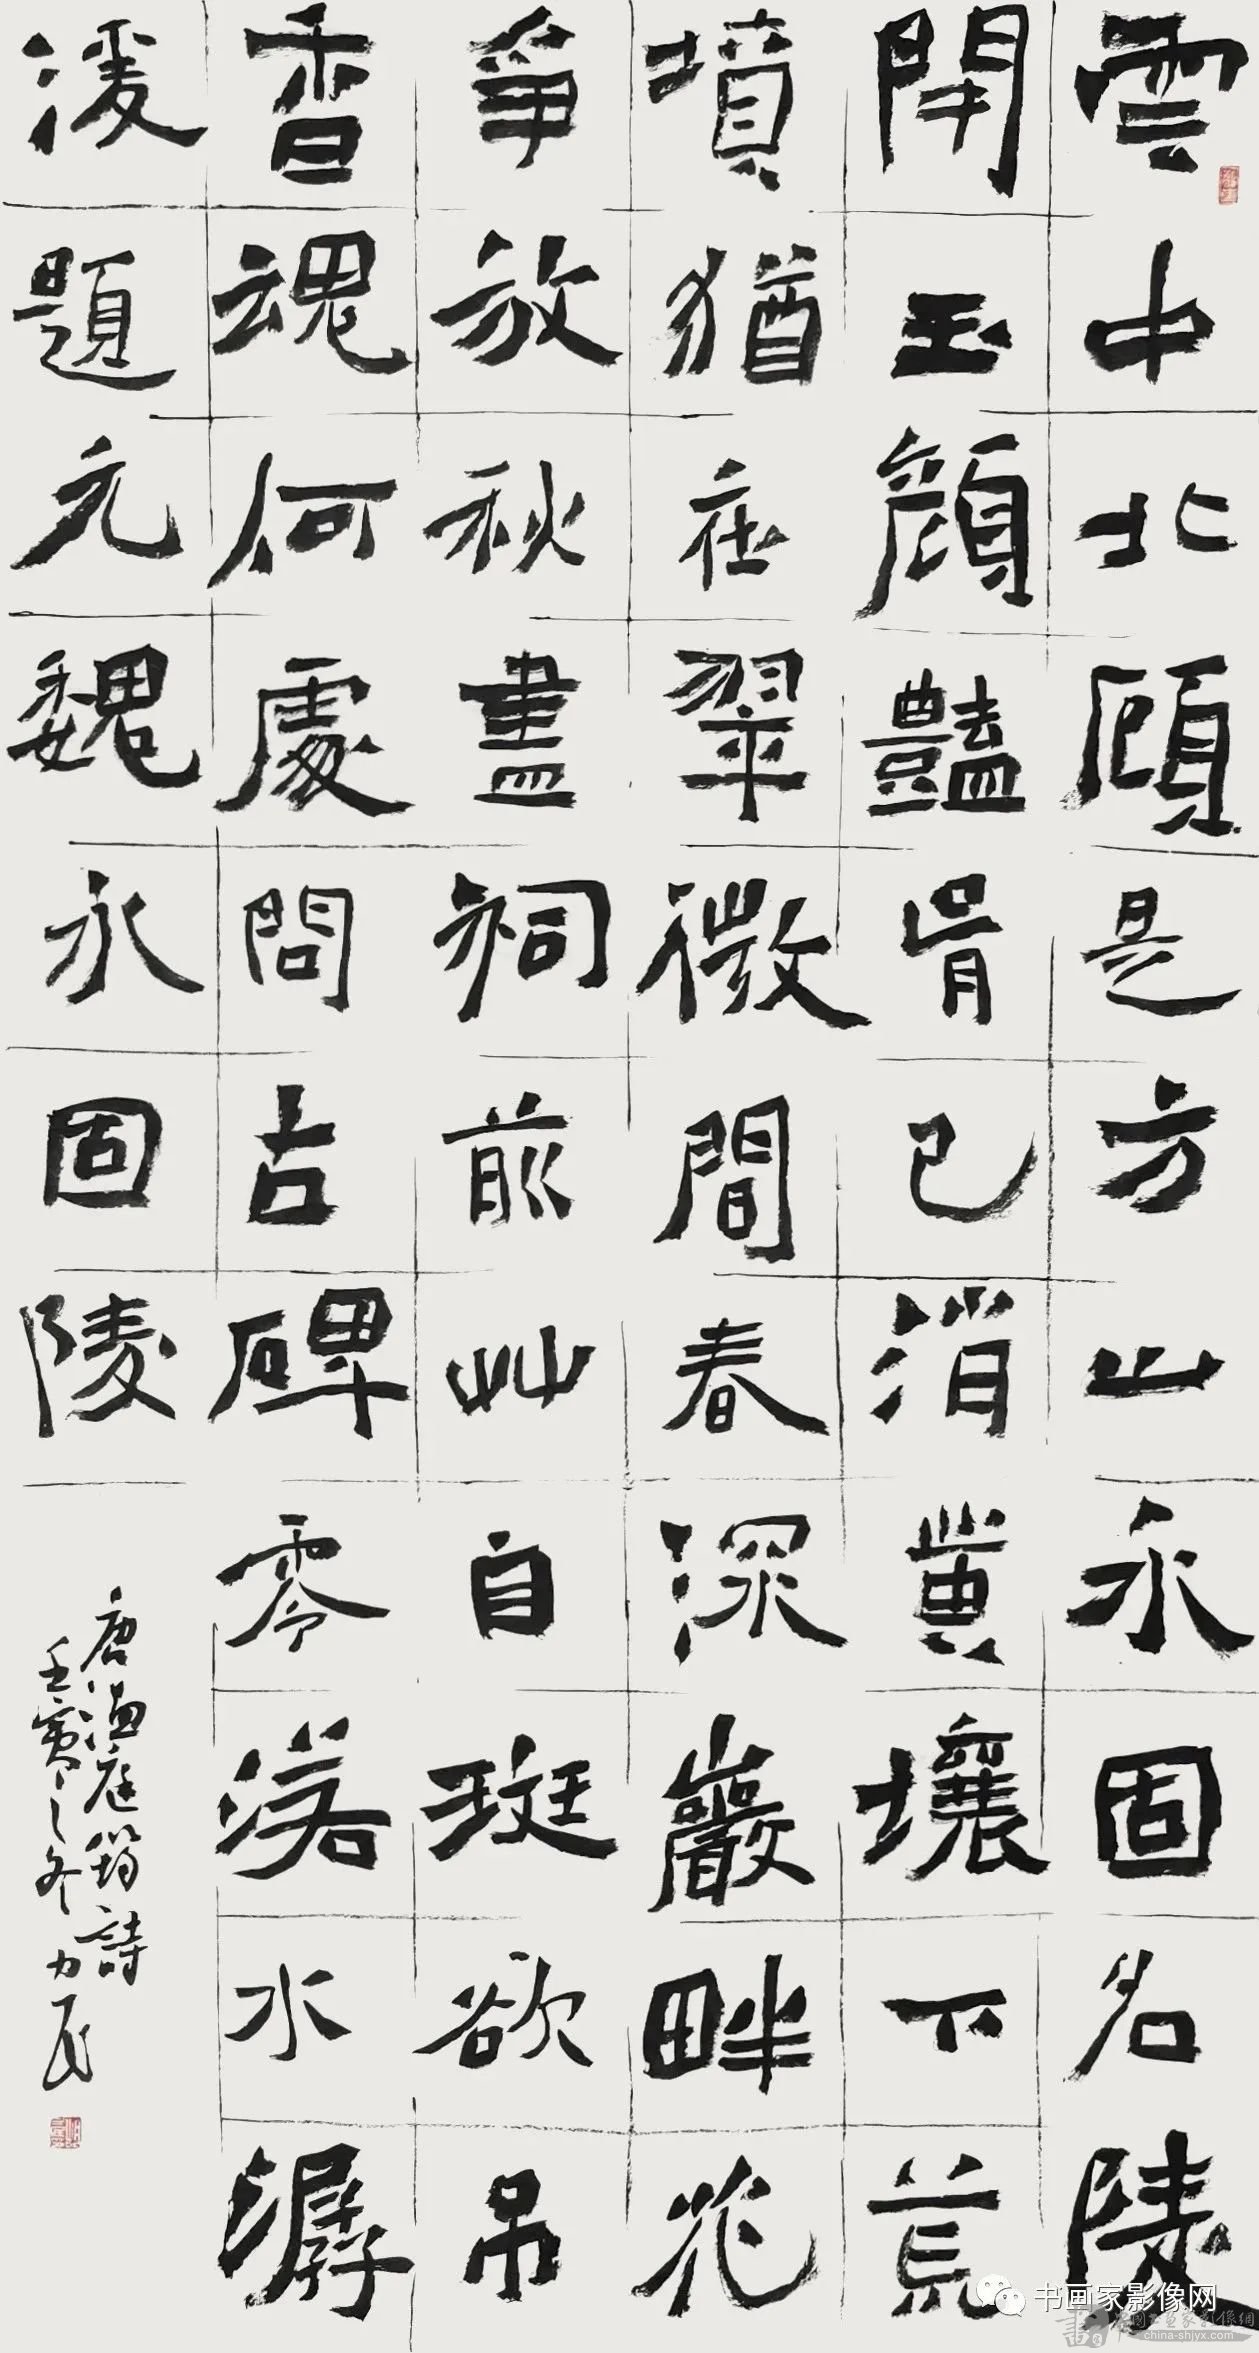 雲中北顧是方山永固名陵
開玉顏豔骨已消黃壤下荒
墳猶在翠微間春深巖畔花
爭放秋盡祠前艸自斑欲吊
香魂何處問古碑零落水潺
湲題元魏永固陵
唐温庭筠詩
壬寅之冬力
书画家影像网
china-shjyx.com